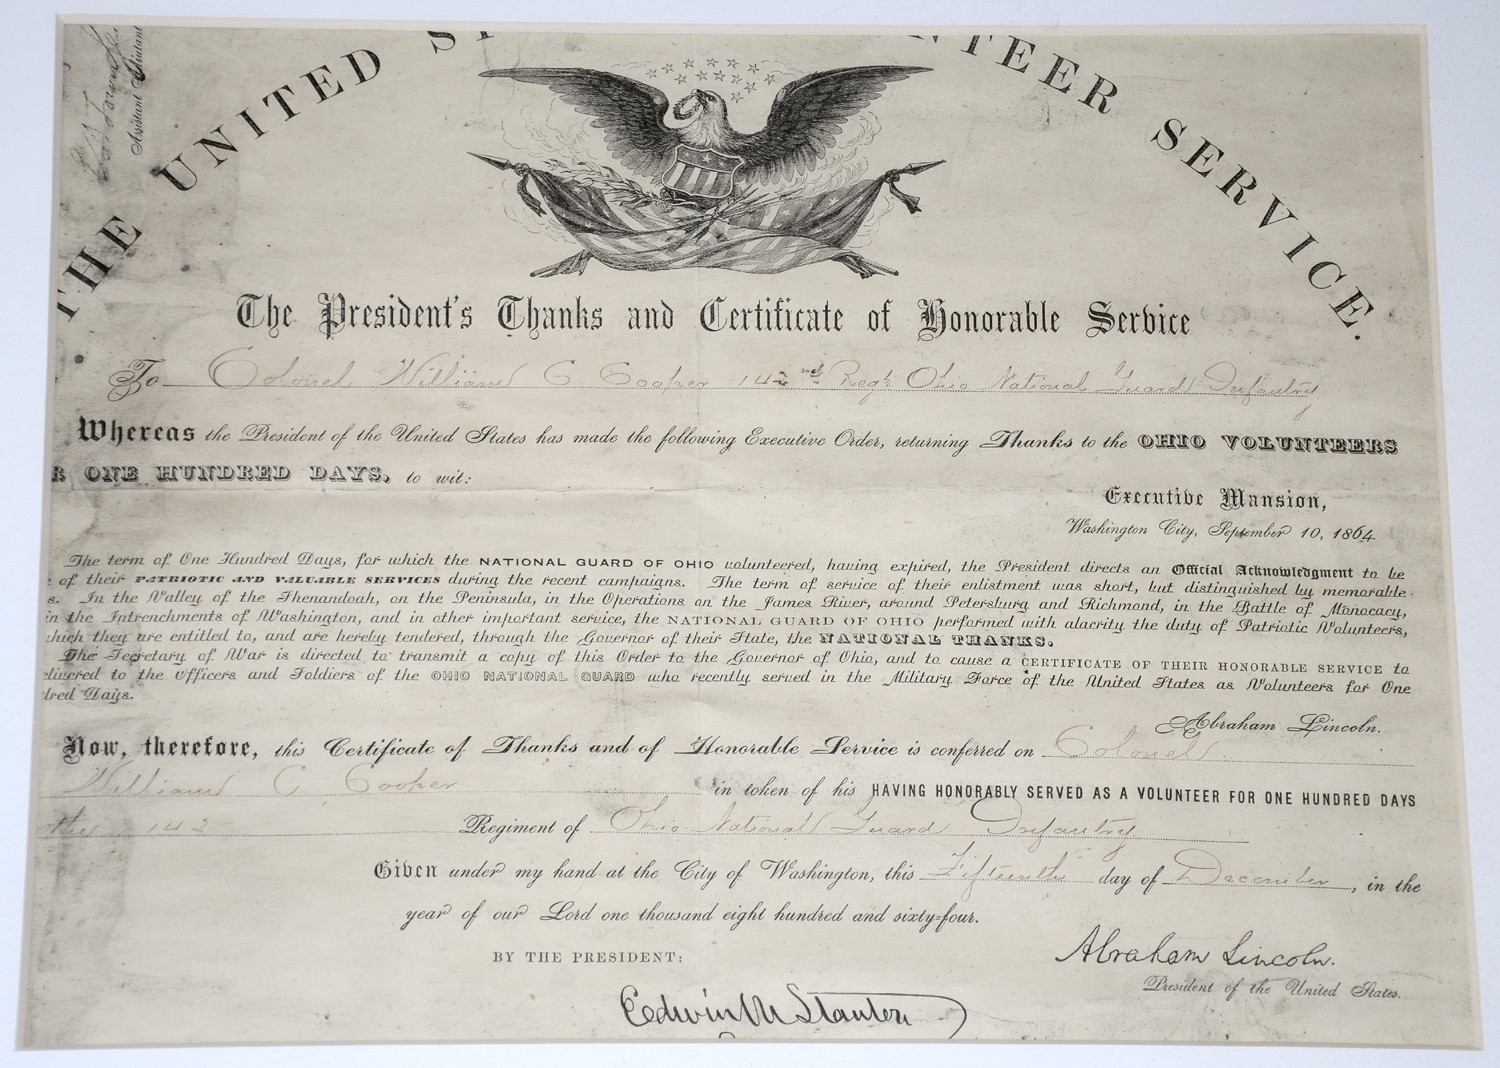 THE UNITED S TEER SERVICE.
Assistant Adjutant
The President's Thanks and Certificate of Honorable Service
To Colonel William C Cooper 142nd Regt Ohio National Guard Infantry
Whereas the President of the United States has made the following Executive Order, returning Thanks to the OHIO VOLUNTEERS
R ONE HUNDRED DAYS, to wit:
Executive Mansion,
Washington City, September 10, 1864.
The term of One Hundred Days, for which the NATIONAL GUARD OF OHIO volunteered, having expired, the President directs an Official Acknowledgment to be
of their PATRIOTIC AND VALUABLE SERVICES during the recent campaigns. The term of service of their enlistment was short, but distinguished by memorable
s. In the Valley of the Shenandoah, on the Peninsula, in the Operations on the James River, around Petersburg and Richmond, in the Battle of Monocacy,
in the Intrenchments of Washington, and in other important service, the NATIONAL GUARD OF OHIO performed with alacrity the duty of Patriotic Volunteers,
which they are entitled to, and are hereby tendered, through the Governor of their State, the NATIONAL THANKS.
The Secretary of War is directed to transmit a copy of this Order to the Governor of Ohio, and to cause a CERTIFICATE OF THEIR HONORABLE SERVICE to
elivered to the Officers and Soldiers of the OHIO NATIONAL GUARD who recently served in the Military Force of the United States as Volunteers for One
dred Days.
Abraham Lincoln.
Now, therefore, this Certificate of Thanks and of Honorable Service is conferred on Colonel
William C Cooper in token of his HAVING HONORABLY SERVED AS A VOLUNTEER FOR ONE HUNDRED DAYS
the 142 Regiment of Ohio National Guard Infantry
Given under my hand at the City of Washington, this Fifteenth day of December, in the
year of our Lord one thousand eight hundred and sixty-four.
BY THE PRESIDENT:
Abraham Lincoln.
President of the United States.
Edwin M Stanton